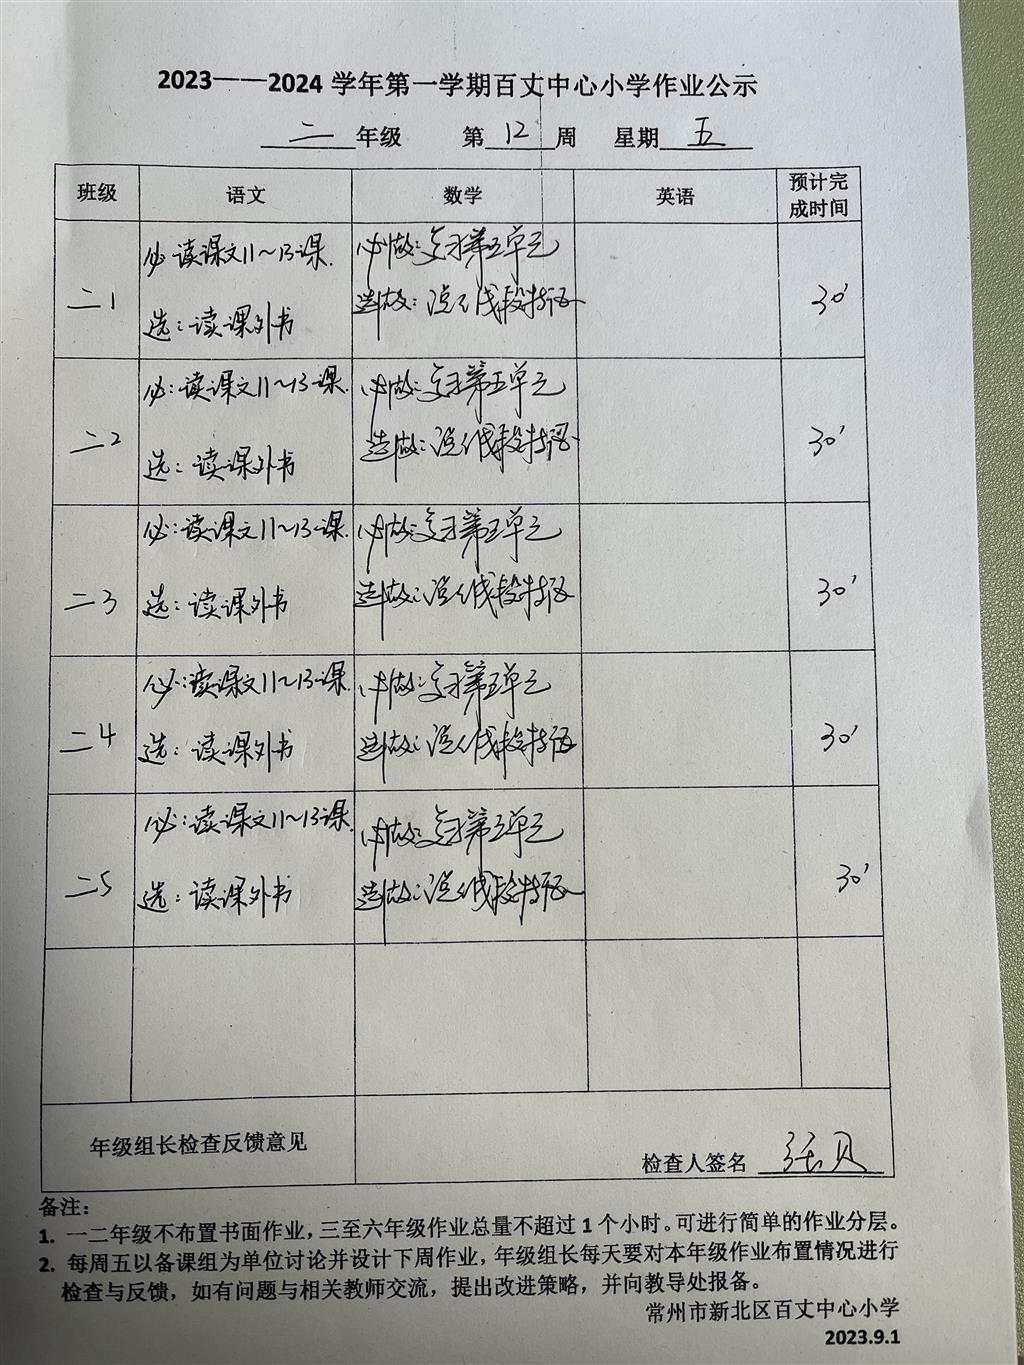 2023——2024 学年第一学期百丈中心小学作业公示
二 年级 第 12 周 星期 五
班级 语文 数学 英语 预计完成时间
二1 必 读课文11~13课. 必做:复习第五单元
选:读课外书 选做:说说线段特征 30'
二2 必:读课文11~13课. 必做:复习第五单元
选:读课外书 选做:说说线段特征 30'
二3 必:读课文11~13课. 必做:复习第五单元
选:读课外书 选做:说说线段特征 30'
二4 必:读课文11~13课. 必做:复习第五单元
选:读课外书 选做:说说线段特征 30'
二5 必:读课文11~13课. 必做:复习第五单元
选:读课外书 选做:说说线段特征 30'
年级组长检查反馈意见
检查人签名 张贝
备注:
1. 一二年级不布置书面作业，三至六年级作业总量不超过 1 个小时。可进行简单的作业分层。
2. 每周五以备课组为单位讨论并设计下周作业，年级组长每天要对本年级作业布置情况进行
检查与反馈，如有问题与相关教师交流，提出改进策略，并向教导处报备。
常州市新北区百丈中心小学
2023.9.1